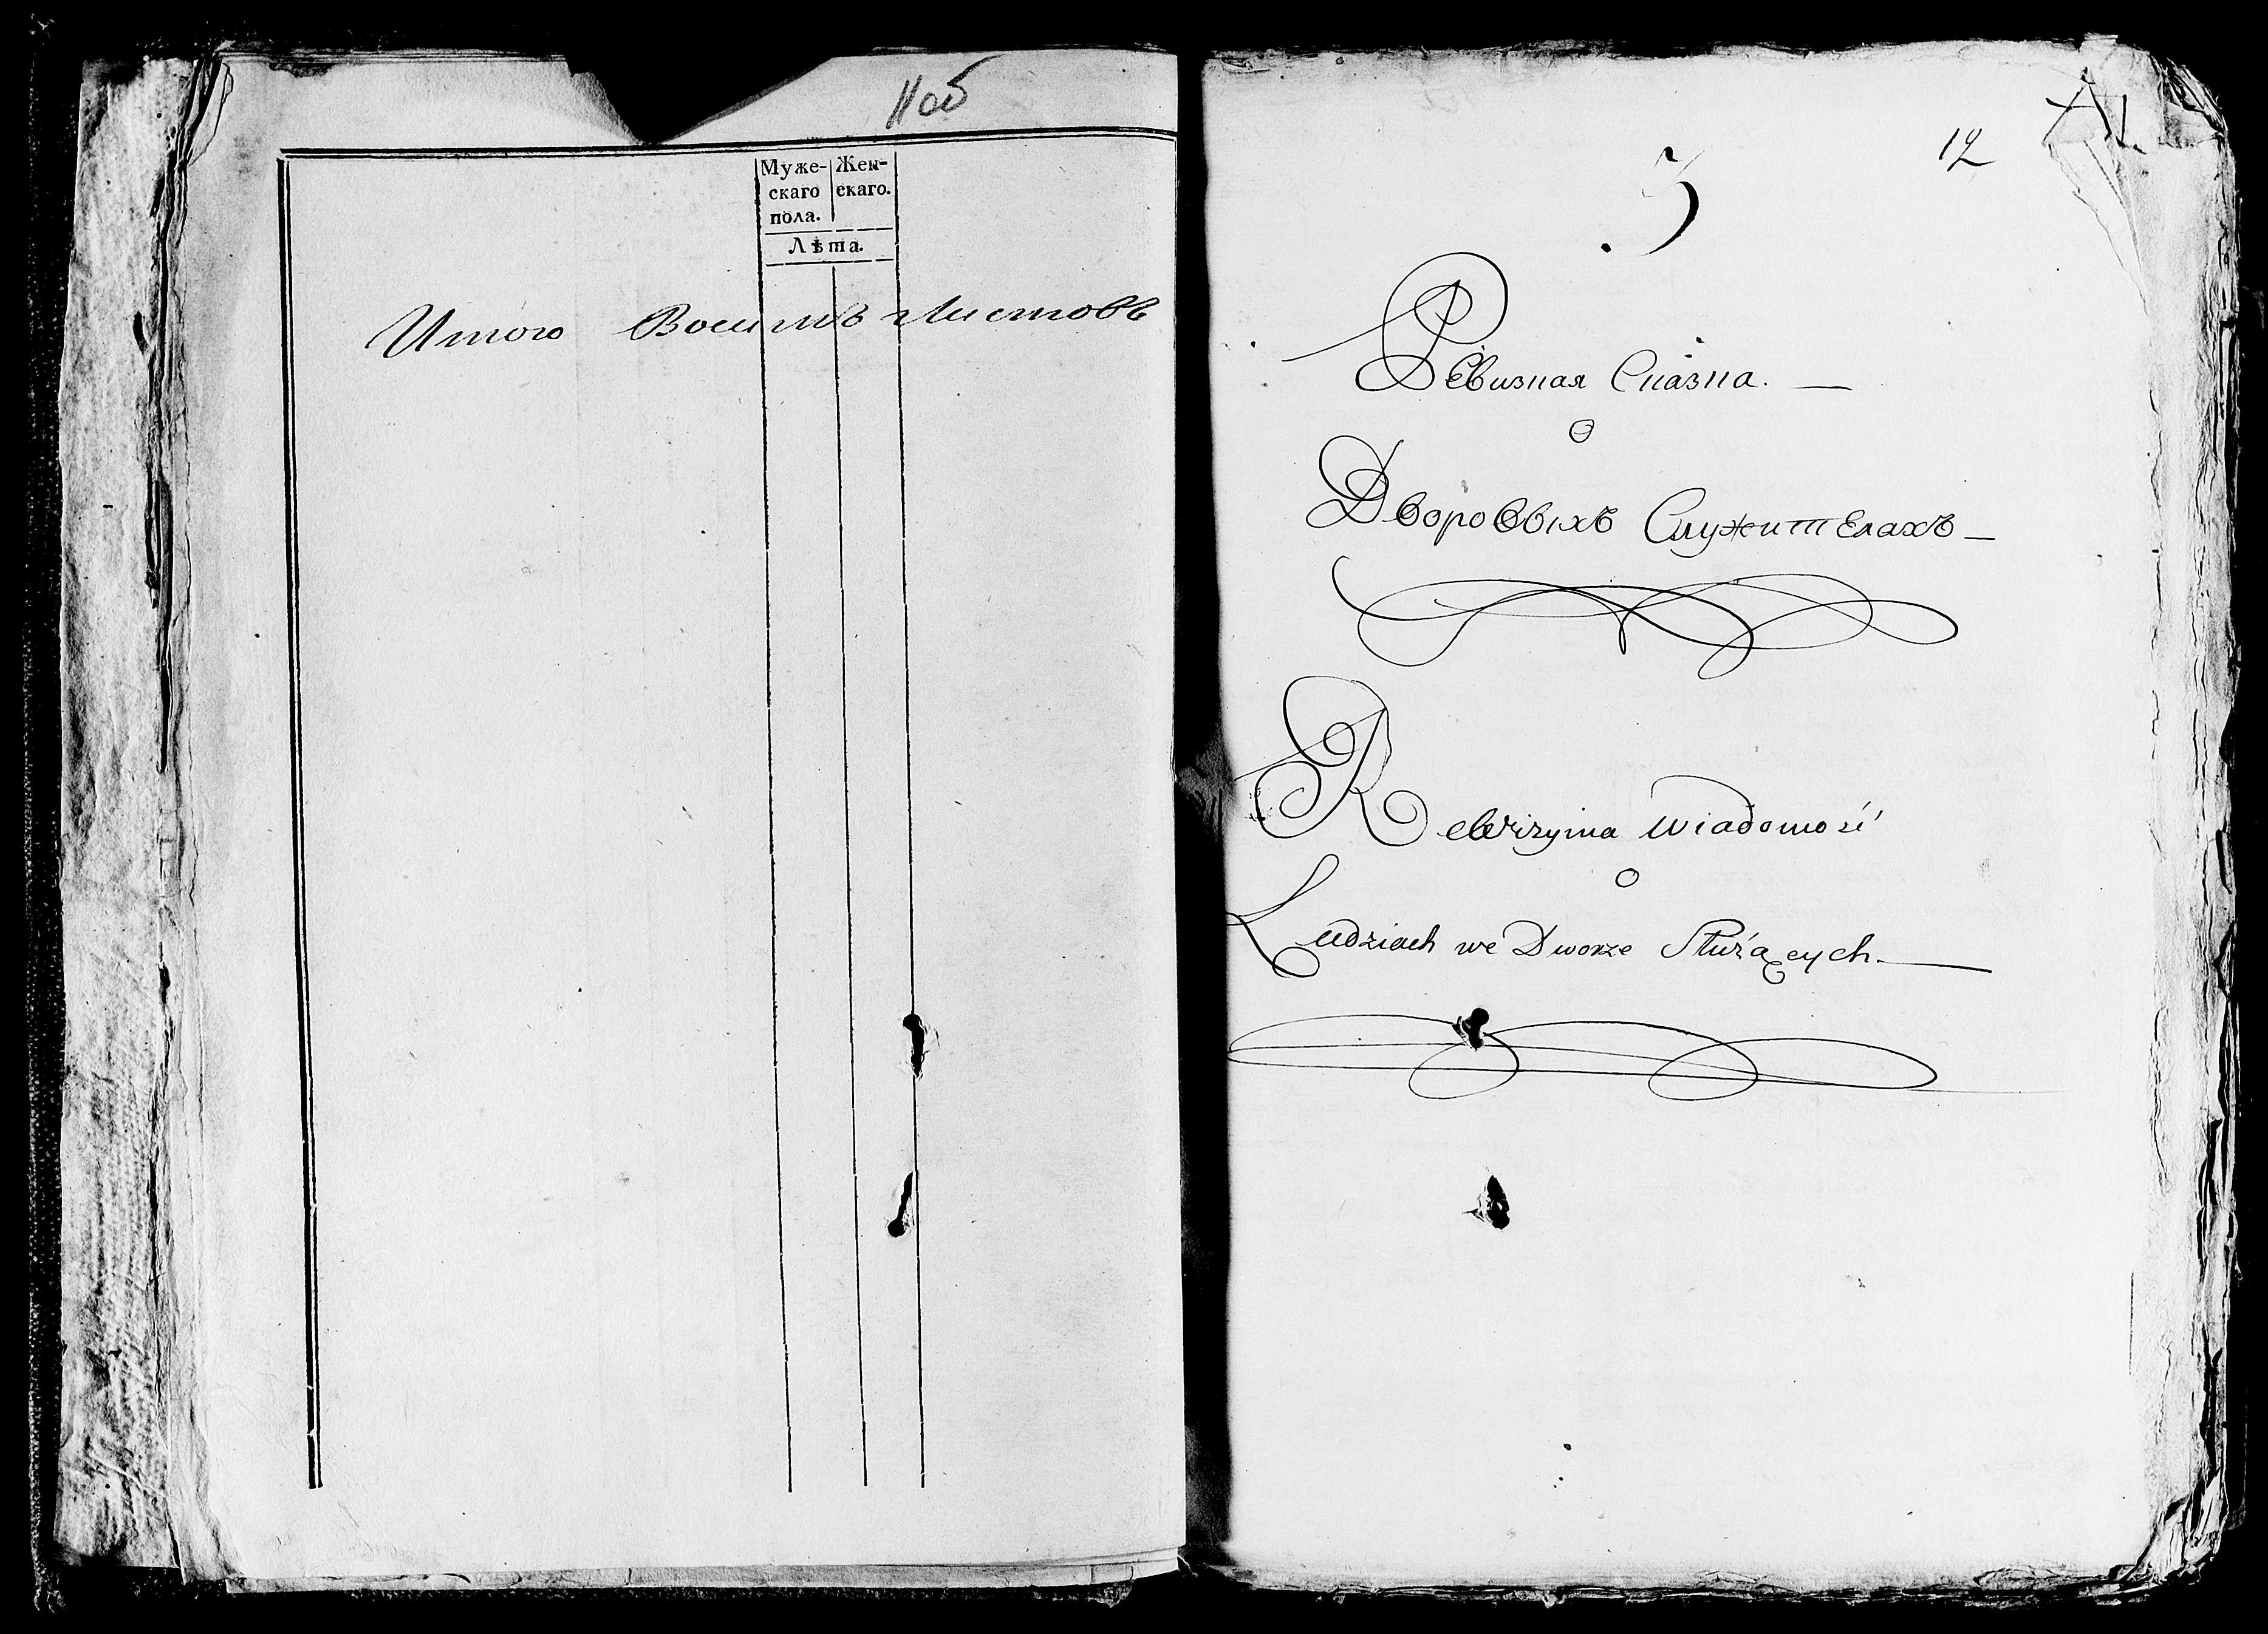 11 об
Муже- Жен-
скаго скаго.
пола.
Лѣта.
Итого Восимъ Листовъ
12
3
Ревизная Сказка. —
О
Дворовыхъ Служителахъ —
Rewizyina Wiadomość
O
Ludziach we Dworze Służących. —